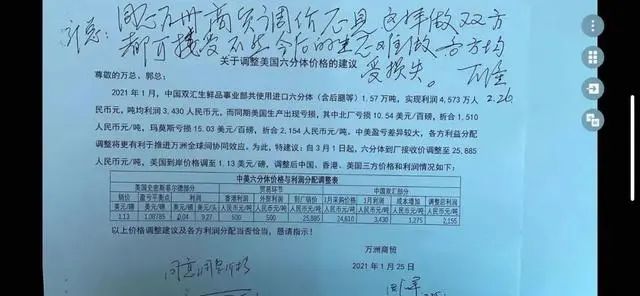 同意万洲商贸调价，但这样做双方
都可接受，不然今后的生意难做，各方均
受损失。
2.26
关于调整美国六分体价格的建议
尊敬的万总、郭总：
2021年1月，中国双汇生鲜品事业部共使用进口六分体（含后腿等）1.57万吨，实现利润4,573万人
民币元，吨均利润3,430人民币元，而同期美国生产出现亏损，其中北厂亏损10.54美元/百磅，折合1,510
人民币元/吨，玛莫斯亏损15.03美元/百磅，折合2,154人民币元/吨，中美盈亏差异较大，各方利益分配
调整将更有利于推进万洲全球间协同效应。为此，特建议：自3月1日起，六分体到厂接收价调整至25,885
人民币元/吨，美国到岸价格调至1.13美元/磅，调整后中国、香港、美国三方价格和利润情况如下：
中美六分体价格与利润分配调整表
美国史密斯菲尔德部分 贸易环节 中国双汇部分
销价 盈亏平衡点 利润 香港利润 外贸利润 到厂销价 1月采购价格 1月利润 成本增加 调整后利润
美元/磅 美元/磅 美元/磅 美元/头 人民币元/吨 人民币元/吨 人民币元/吨 人民币元/吨 人民币元/吨 人民币元/吨 人民币元/吨
1.13 1.08785 0.04 9.27 500 500 25,885 24,610 3,430 1,275 2,155
以上价格调整建议及各方利润分配当否恰当，恳请指示！
万洲商贸
2021年1月25日